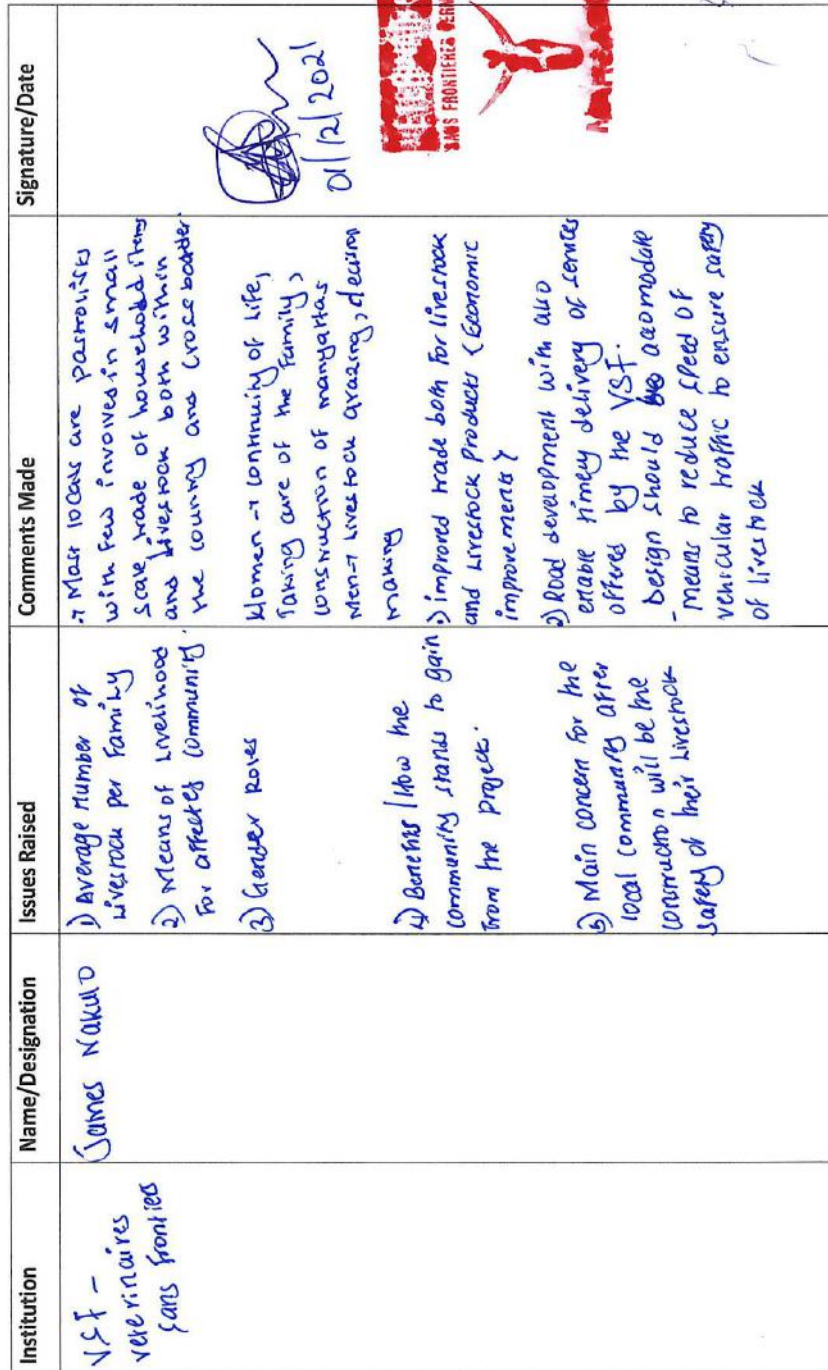 Institution
Name/Designation
Issues Raised
Comments Made
Signature/Date
VSF -
veterinaires
sans frontiers
James Nakulo
1) Average number of
Livestock per Family
2) Means of Livelihood
For affected community.
3) Gender Roles
4) Benefits / How the
community stands to gain
from the project.
5) Main concern for the
local community after
construction will be the
safety of their livestock
→ Most locals are pastrolists
with few involved in small
scale trade of household items
and Livestock both within
the country and cross boarder.
Women → continuity of life,
Taking care of the Family,
construction of manyattas
Men → Livestock grazing, decision
making
1) improved trade both for livestock
and Livestock Products (Economic
improvements)
2) Road development with also
enable timely delivery of services
offered by the VSF.
- Design should accomodate
means to reduce speed of
vehicular traffic to ensure safety
of livestock
01/12/2021
SANS FRONTIERES